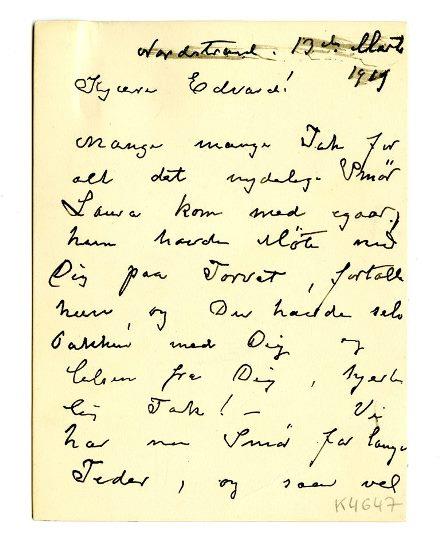 Nordstrand. 13de Marts
1919
Kjære Edvard!
Mange mange Tak for
alt det nydelige Smör
Laura kom med igaar,
hun havde Möte med
Dig paa Torvet, fortalte
hun, og Du havde selv
Pakken med Dig og
lelsen fra Dig, hjerte
lig Tak! — Vi
har nu Smör for lange
Tider, og saa vel
K4647